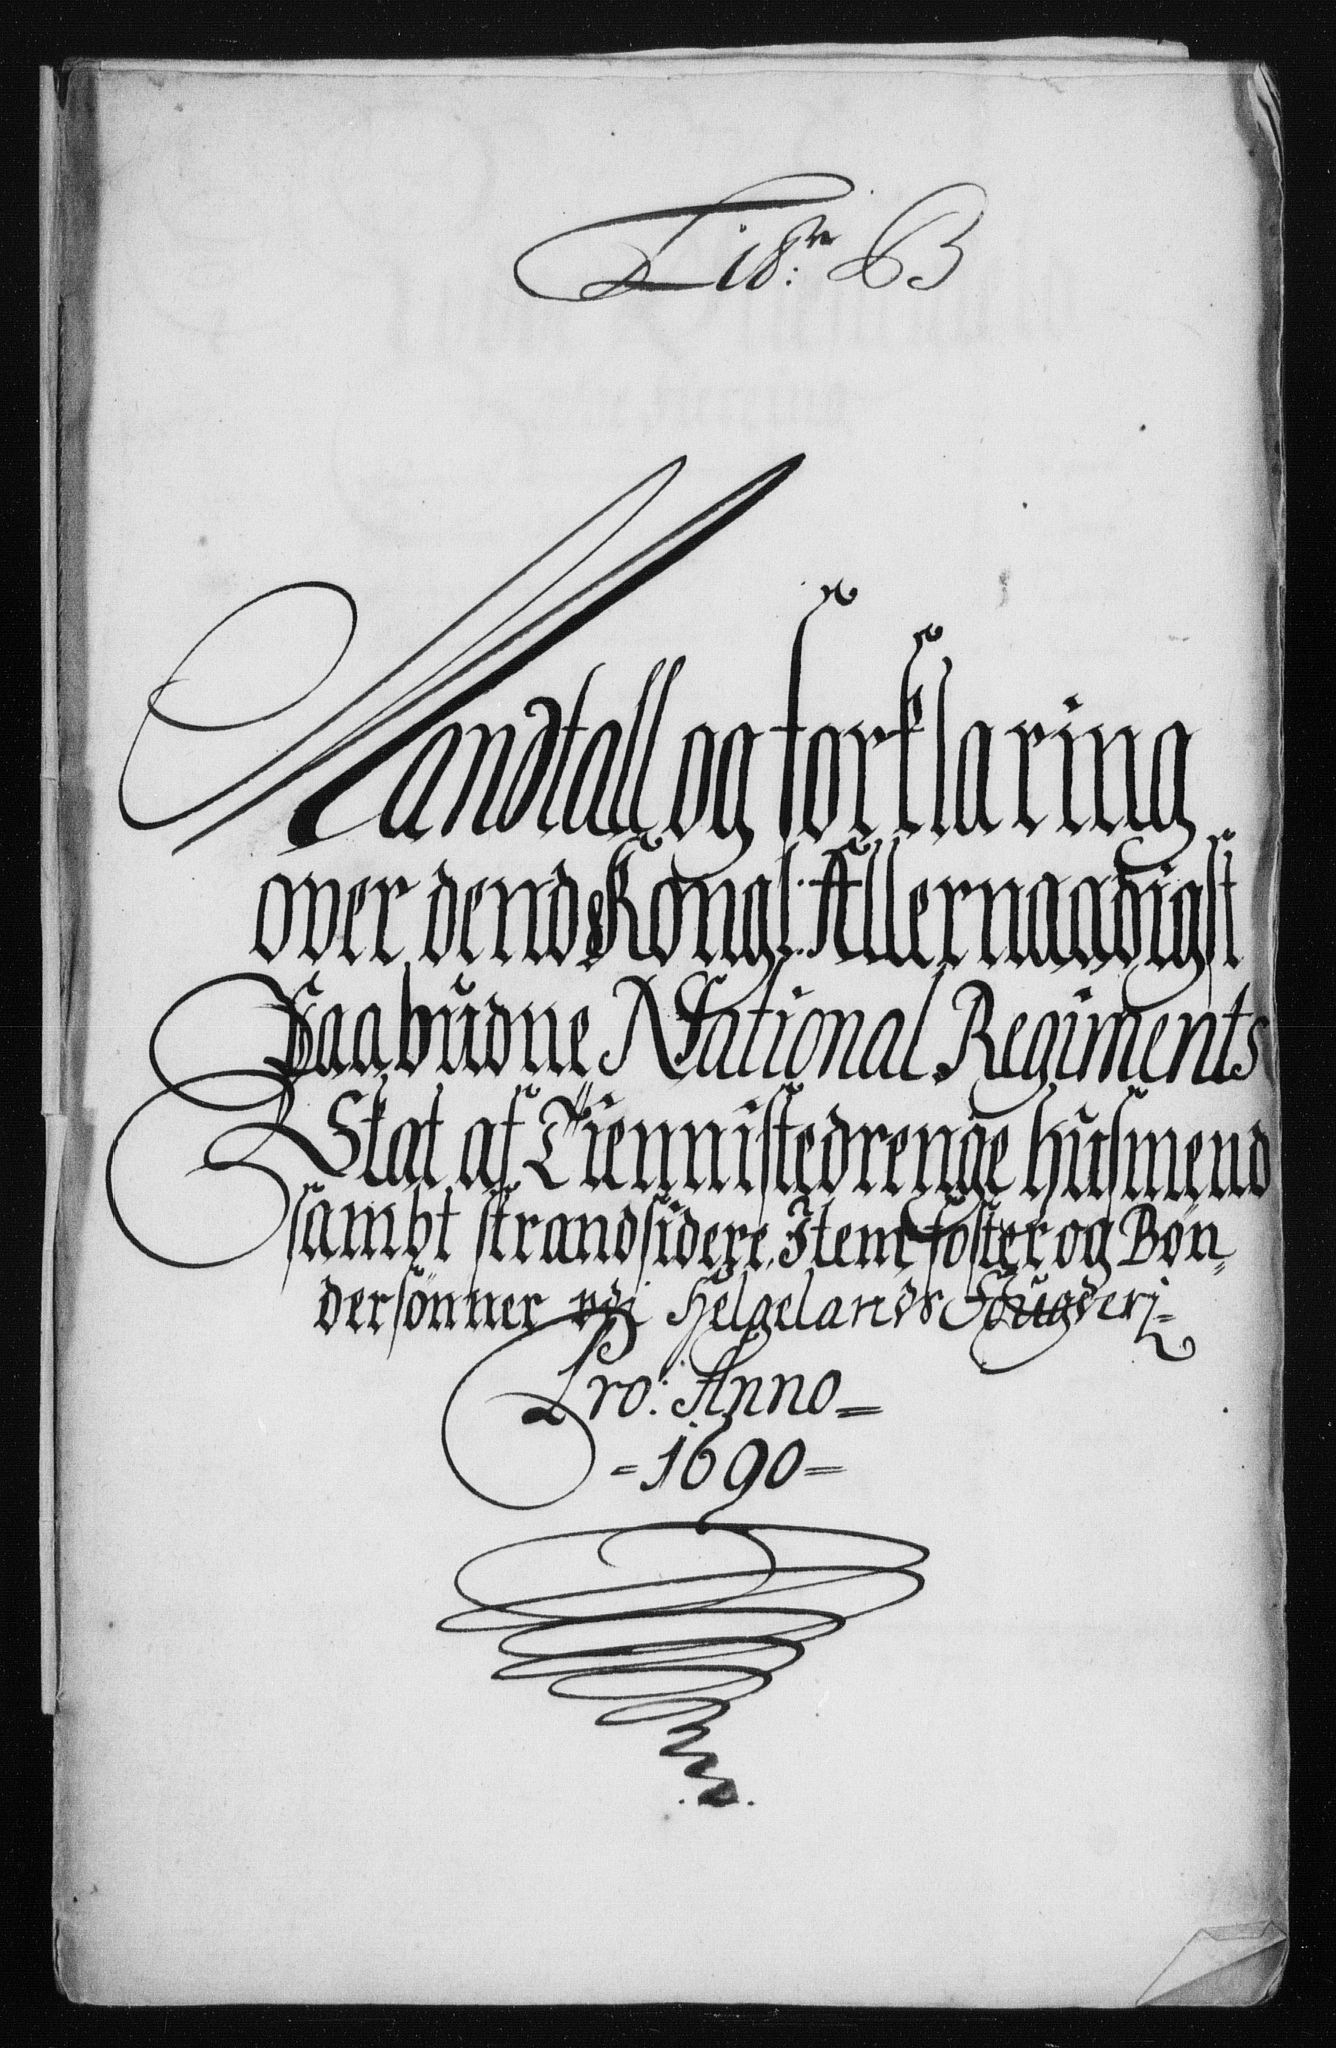 Litr: B
Mandtall og forklaring
over dend Kongl: Allernaadigst
Paabudne National Regiments
Skat af Tienniste drenge husmend
sambt strandsidere, Item foster og Bøn„
dersønner udj Helgelands Fougderj=
Pro: Anno=
=1690=